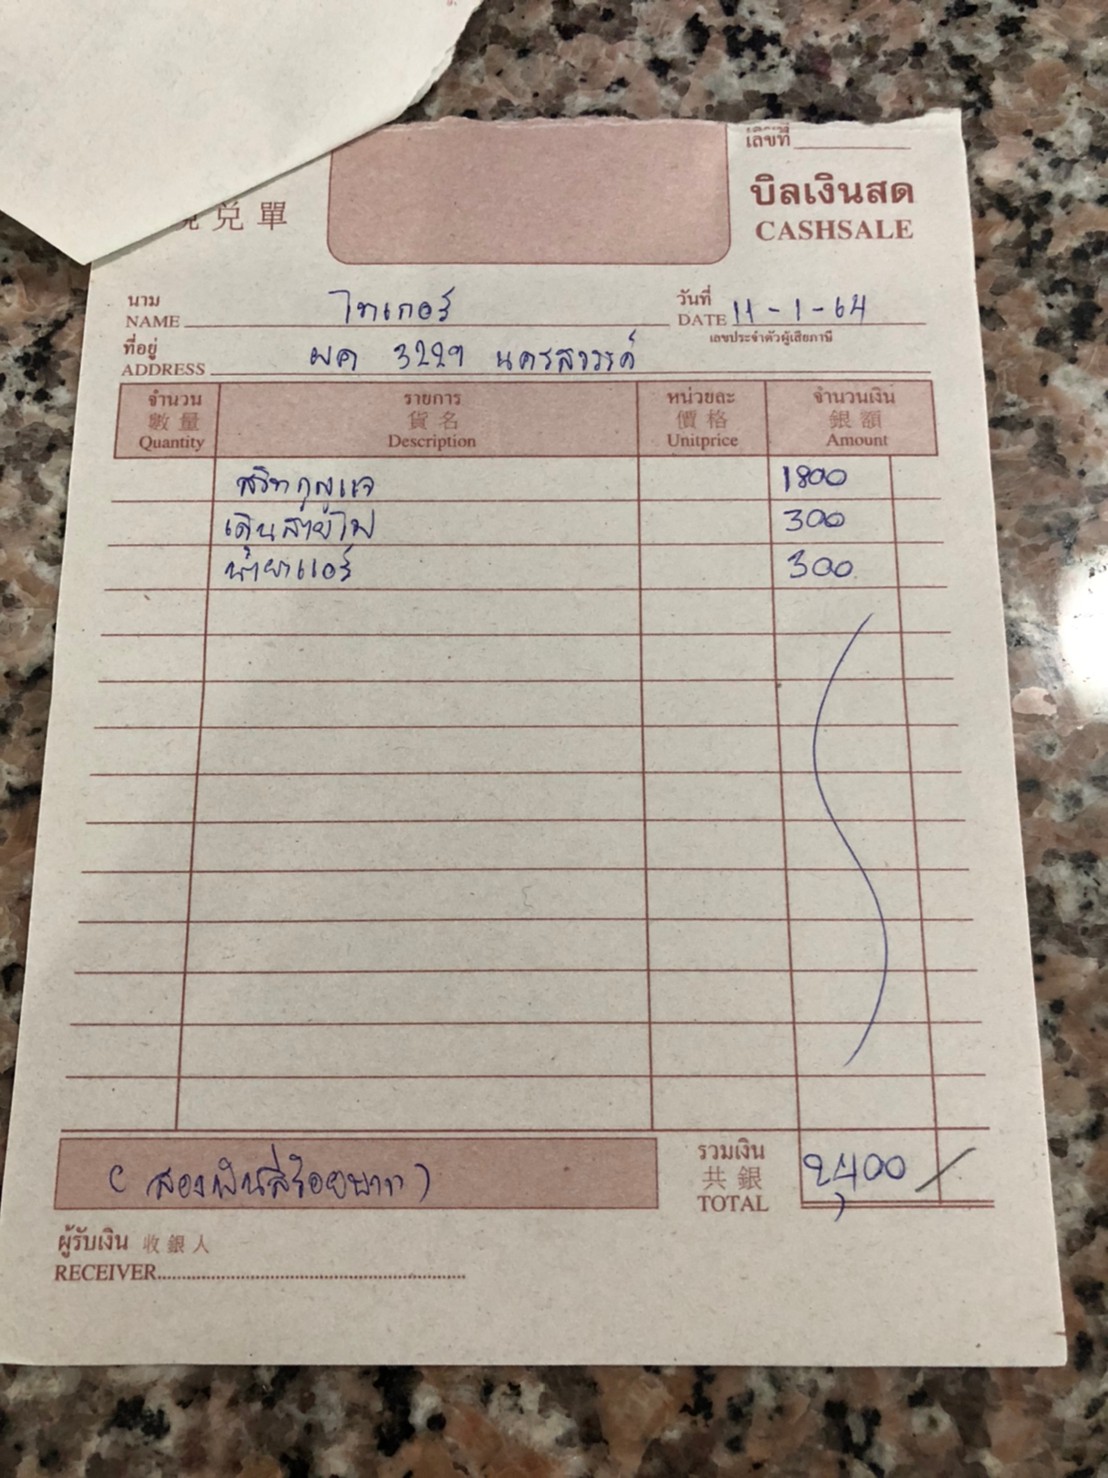 เลขที่
兌單
บิลเงินสด
CASHSALE
นาม
NAME ไทเกอร์
วันที่
DATE 11-1-64
เลขประจำตัวผู้เสียภาษี
ที่อยู่
ADDRESS ผค 3229 นครสวรรค์
จำนวน รายการ หน่วยละ จำนวนเงิน
數量 貨名 價格 銀額
Quantity Description Unitprice Amount
สวิทกุญแจ 1800
เดินสายไฟ 300
น้ำยาแอร์ 300
(สองพันสี่ร้อยบาท)
รวมเงิน
共銀
TOTAL 2,400
ผู้รับเงิน 收銀人
RECEIVER